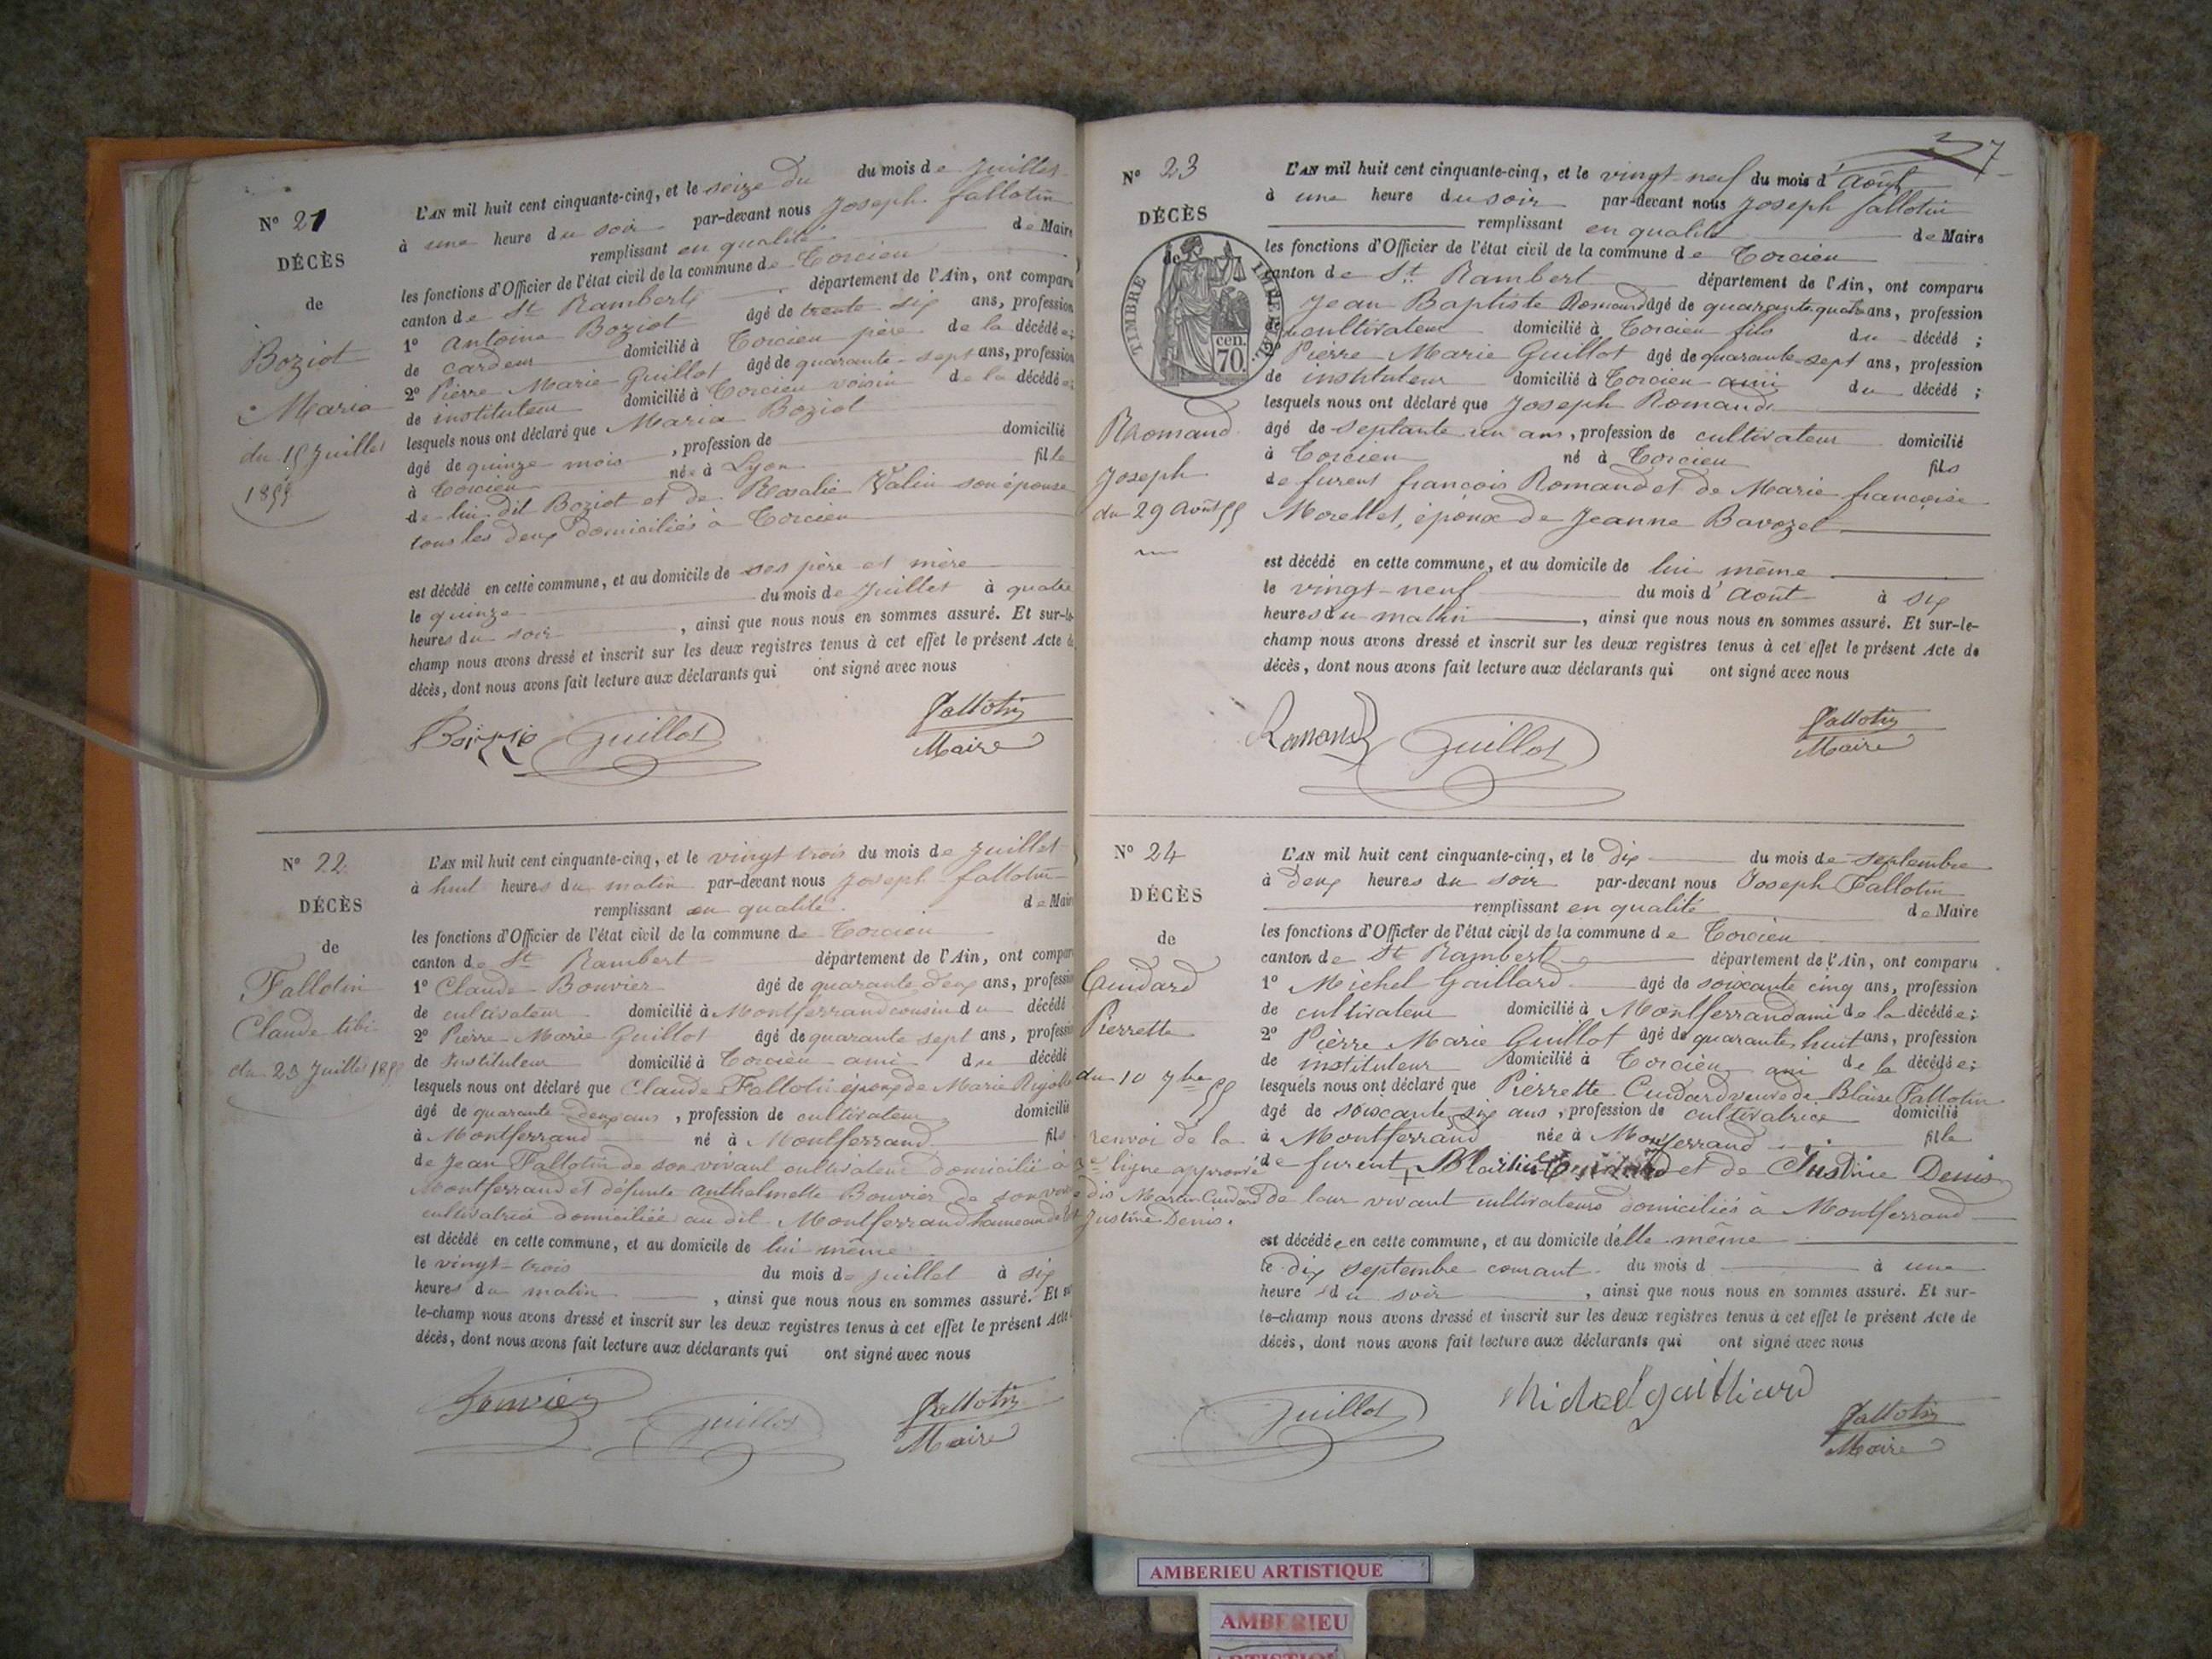 N° 21
DÉCÈS
de
Boziot
Maria
du 15 Juillet
1855
L'AN mil huit cent cinquante-cinq, et le seize du du mois de Juillet
à une heure du soir par-devant nous Joseph fallotin
remplissant en qualité de Maire
les fonctions d'Officier de l'état civil de la commune de Torcieu
canton de St Rambert département de l'Ain, ont comparu
1° Antoine Boziot âgé de trente six ans, profession
de cardeur domicilié à Torcieu père de la décédée;
2° Pierre Marie Guillot âgé de quarante-sept ans, profession
de instituteur domicilié à Torcieu voisin de la décédée;
lesquels nous ont déclaré que Maria Boziot
âgé de quinze mois, profession de domicilié
à Torcieu née à Lyon fille
de lui dit Boziot et de Rosalie Valin son épouse
tous les deux domiciliés à Torcieu
est décédé en cette commune, et au domicile de ses père et mère
le quinze du mois de Juillet à quatre
heures du soir, ainsi que nous nous en sommes assuré. Et sur-le-
champ nous avons dressé et inscrit sur les deux registres tenus à cet effet le présent Acte de
décès, dont nous avons fait lecture aux déclarants qui ont signé avec nous
Guillot
fallotin
Maire
N° 22
DÉCÈS
de
Fallotin
Claude
du 23 Juillet 1855
L'AN mil huit cent cinquante-cinq, et le vingt trois du mois de Juillet
à huit heures du matin par-devant nous Joseph fallotin
remplissant en qualité de Maire
les fonctions d'Officier de l'état civil de la commune de Torcieu
canton de St Rambert département de l'Ain, ont comparu
1° Claude Bouvier âgé de quarante deux ans, profession
de cultivateur domicilié à Montferrand cousin du décédé
2° Pierre Marie Guillot âgé de quarante sept ans, profession
de Instituteur domicilié à Torcieu ami du décédé
lesquels nous ont déclaré que Claude Fallotin époux de Marie
âgé de quarante deux ans, profession de cultivateur domicilié
à Montferrand né à Montferrand fils
de Jean Fallotin de son vivant cultivateur domicilié à
Montferrand et défunte Anthelmette Bouvier de son vivant
cultivatrice domiciliée au dit Montferrand hameau de
est décédé en cette commune, et au domicile de lui même
le vingt-trois du mois de Juillet à six
heures du matin, ainsi que nous nous en sommes assuré. Et sur-
le-champ nous avons dressé et inscrit sur les deux registres tenus à cet effet le présent Acte de
décès, dont nous avons fait lecture aux déclarants qui ont signé avec nous
Bouvier
Guillot
fallotin
Maire
37
N° 23
DÉCÈS
de
TIMBRE IMPERIAL
cen.
70.
Rhomand
Joseph
du 29 Août 55
L'AN mil huit cent cinquante-cinq, et le vingt-neuf du mois d'Août
à une heure du soir par-devant nous Joseph fallotin
remplissant en qualité de Maire
les fonctions d'Officier de l'état civil de la commune de Torcieu
canton de St Rambert département de l'Ain, ont comparu
Jean Baptiste Romand âgé de quarante quatre ans, profession
de cultivateur domicilié à Torcieu fils du décédé;
Pierre Marie Guillot âgé de quarante-sept ans, profession
de instituteur domicilié à Torcieu ami du décédé;
lesquels nous ont déclaré que Joseph Romand
âgé de septante un ans, profession de cultivateur domicilié
à Torcieu né à Torcieu fils
de furent françois Romand et de Marie françoise
Morellet, époux de Jeanne Bavozet
est décédé en cette commune, et au domicile de lui même
le vingt-neuf du mois d'Août à six
heures du matin, ainsi que nous nous en sommes assuré. Et sur-le-
champ nous avons dressé et inscrit sur les deux registres tenus à cet effet le présent Acte de
décès, dont nous avons fait lecture aux déclarants qui ont signé avec nous
Romand
Guillot
fallotin
Maire
N° 24
DÉCÈS
de
Cuidard
Pierrette
du 10 7bre 55
renvoi de la
3e ligne approuvé
dis Marin Cuidard
Justine Denis.
L'AN mil huit cent cinquante-cinq, et le dix du mois de septembre
à deux heures du soir par-devant nous Joseph Fallotin
remplissant en qualité de Maire
les fonctions d'Officier de l'état civil de la commune de Torcieu
canton de St Rambert département de l'Ain, ont comparu
1° Michel Gaillard âgé de soixante cinq ans, profession
de cultivateur domicilié à Montferrand ami de la décédée;
2° Pierre Marie Guillot âgé de quarante huit ans, profession
de instituteur domicilié à Torcieu ami de la décédée;
lesquels nous ont déclaré que Pierrette Cuidard veuve de Blaise Fallotin
âgé de soixante six ans, profession de cultivatrice domicilié
à Montferrand née à Montferrand fille
de furent et de Justine Denis
de leur vivant cultivateurs domiciliés à Montferrand
est décédée en cette commune, et au domicile d'elle même
le dix septembre courant du mois d à une
heure du soir, ainsi que nous nous en sommes assuré. Et sur-
le-champ nous avons dressé et inscrit sur les deux registres tenus à cet effet le présent Acte de
décès, dont nous avons fait lecture aux déclarants qui ont signé avec nous
Guillot
Michel gailliard
fallotin
Maire
AMBERIEU ARTISTIQUE
AMBERIEU
ARTISTIQUE